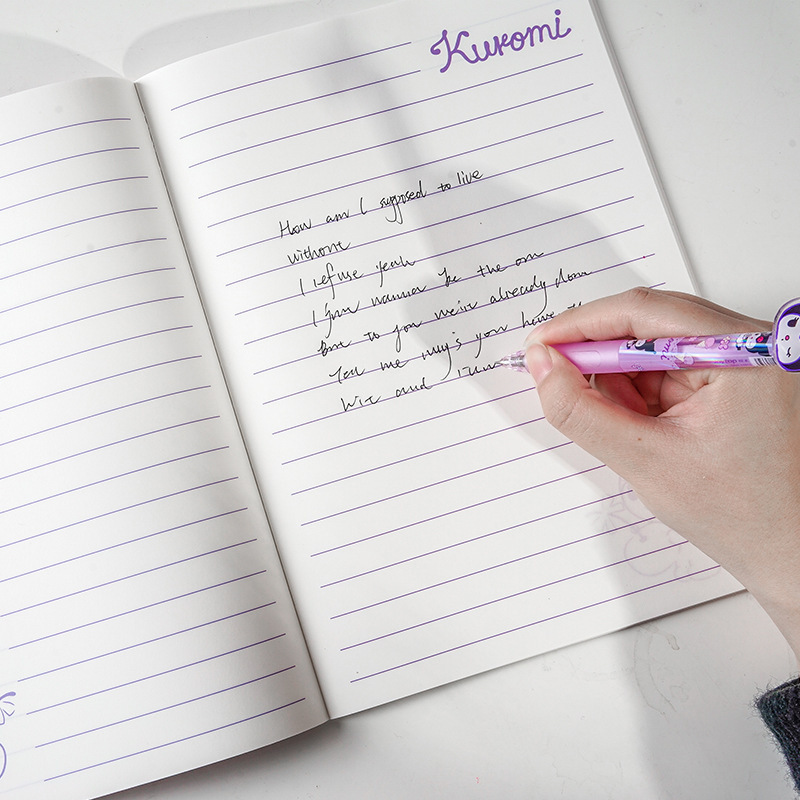 Kuromi
How am I supposed to live
without
I refuse yeah
I jun wanna be the one
but to you we're already done
Tell me why's you have th
Wit and